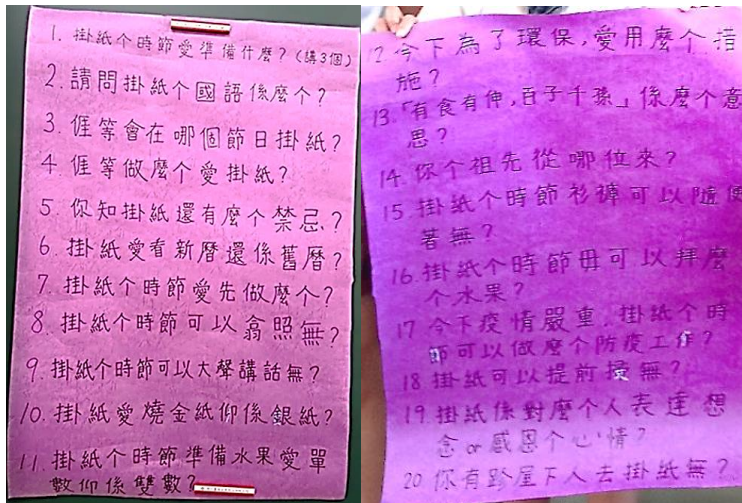 1. 掛紙个時節愛準備什么?(講3個)
2. 請問掛紙个國語係麼个?
3. 𠊎等會在哪個節日掛紙?
4. 𠊎等做麼个愛掛紙?
5. 你知掛紙還有麼个禁忌?
6. 掛紙愛看新曆還係舊曆?
7. 掛紙个時節愛先做麼个?
8. 掛紙个時節可以翕照無?
9. 掛紙个時節可以大聲講話無?
10. 掛紙愛燒金紙仰係銀紙?
11. 掛紙个時節準備水果愛單
數仰係雙數?
12. 今下為了環保,愛用麼个措
施?
13. 「有食有伸,百子千孫」係麼个意
思?
14. 你个祖先從哪位來?
15. 掛紙个時節衫褲可以隨便
著無?
16. 掛紙个時節毋可以拜麼
个水果?
17 今下疫情嚴重,掛紙个時
節可以做麼个防疫工作?
18 掛紙可以提前掃無?
19 掛紙係對麼个人表達想
念or感恩个心情?
20 你有跈屋下人去掛紙無?